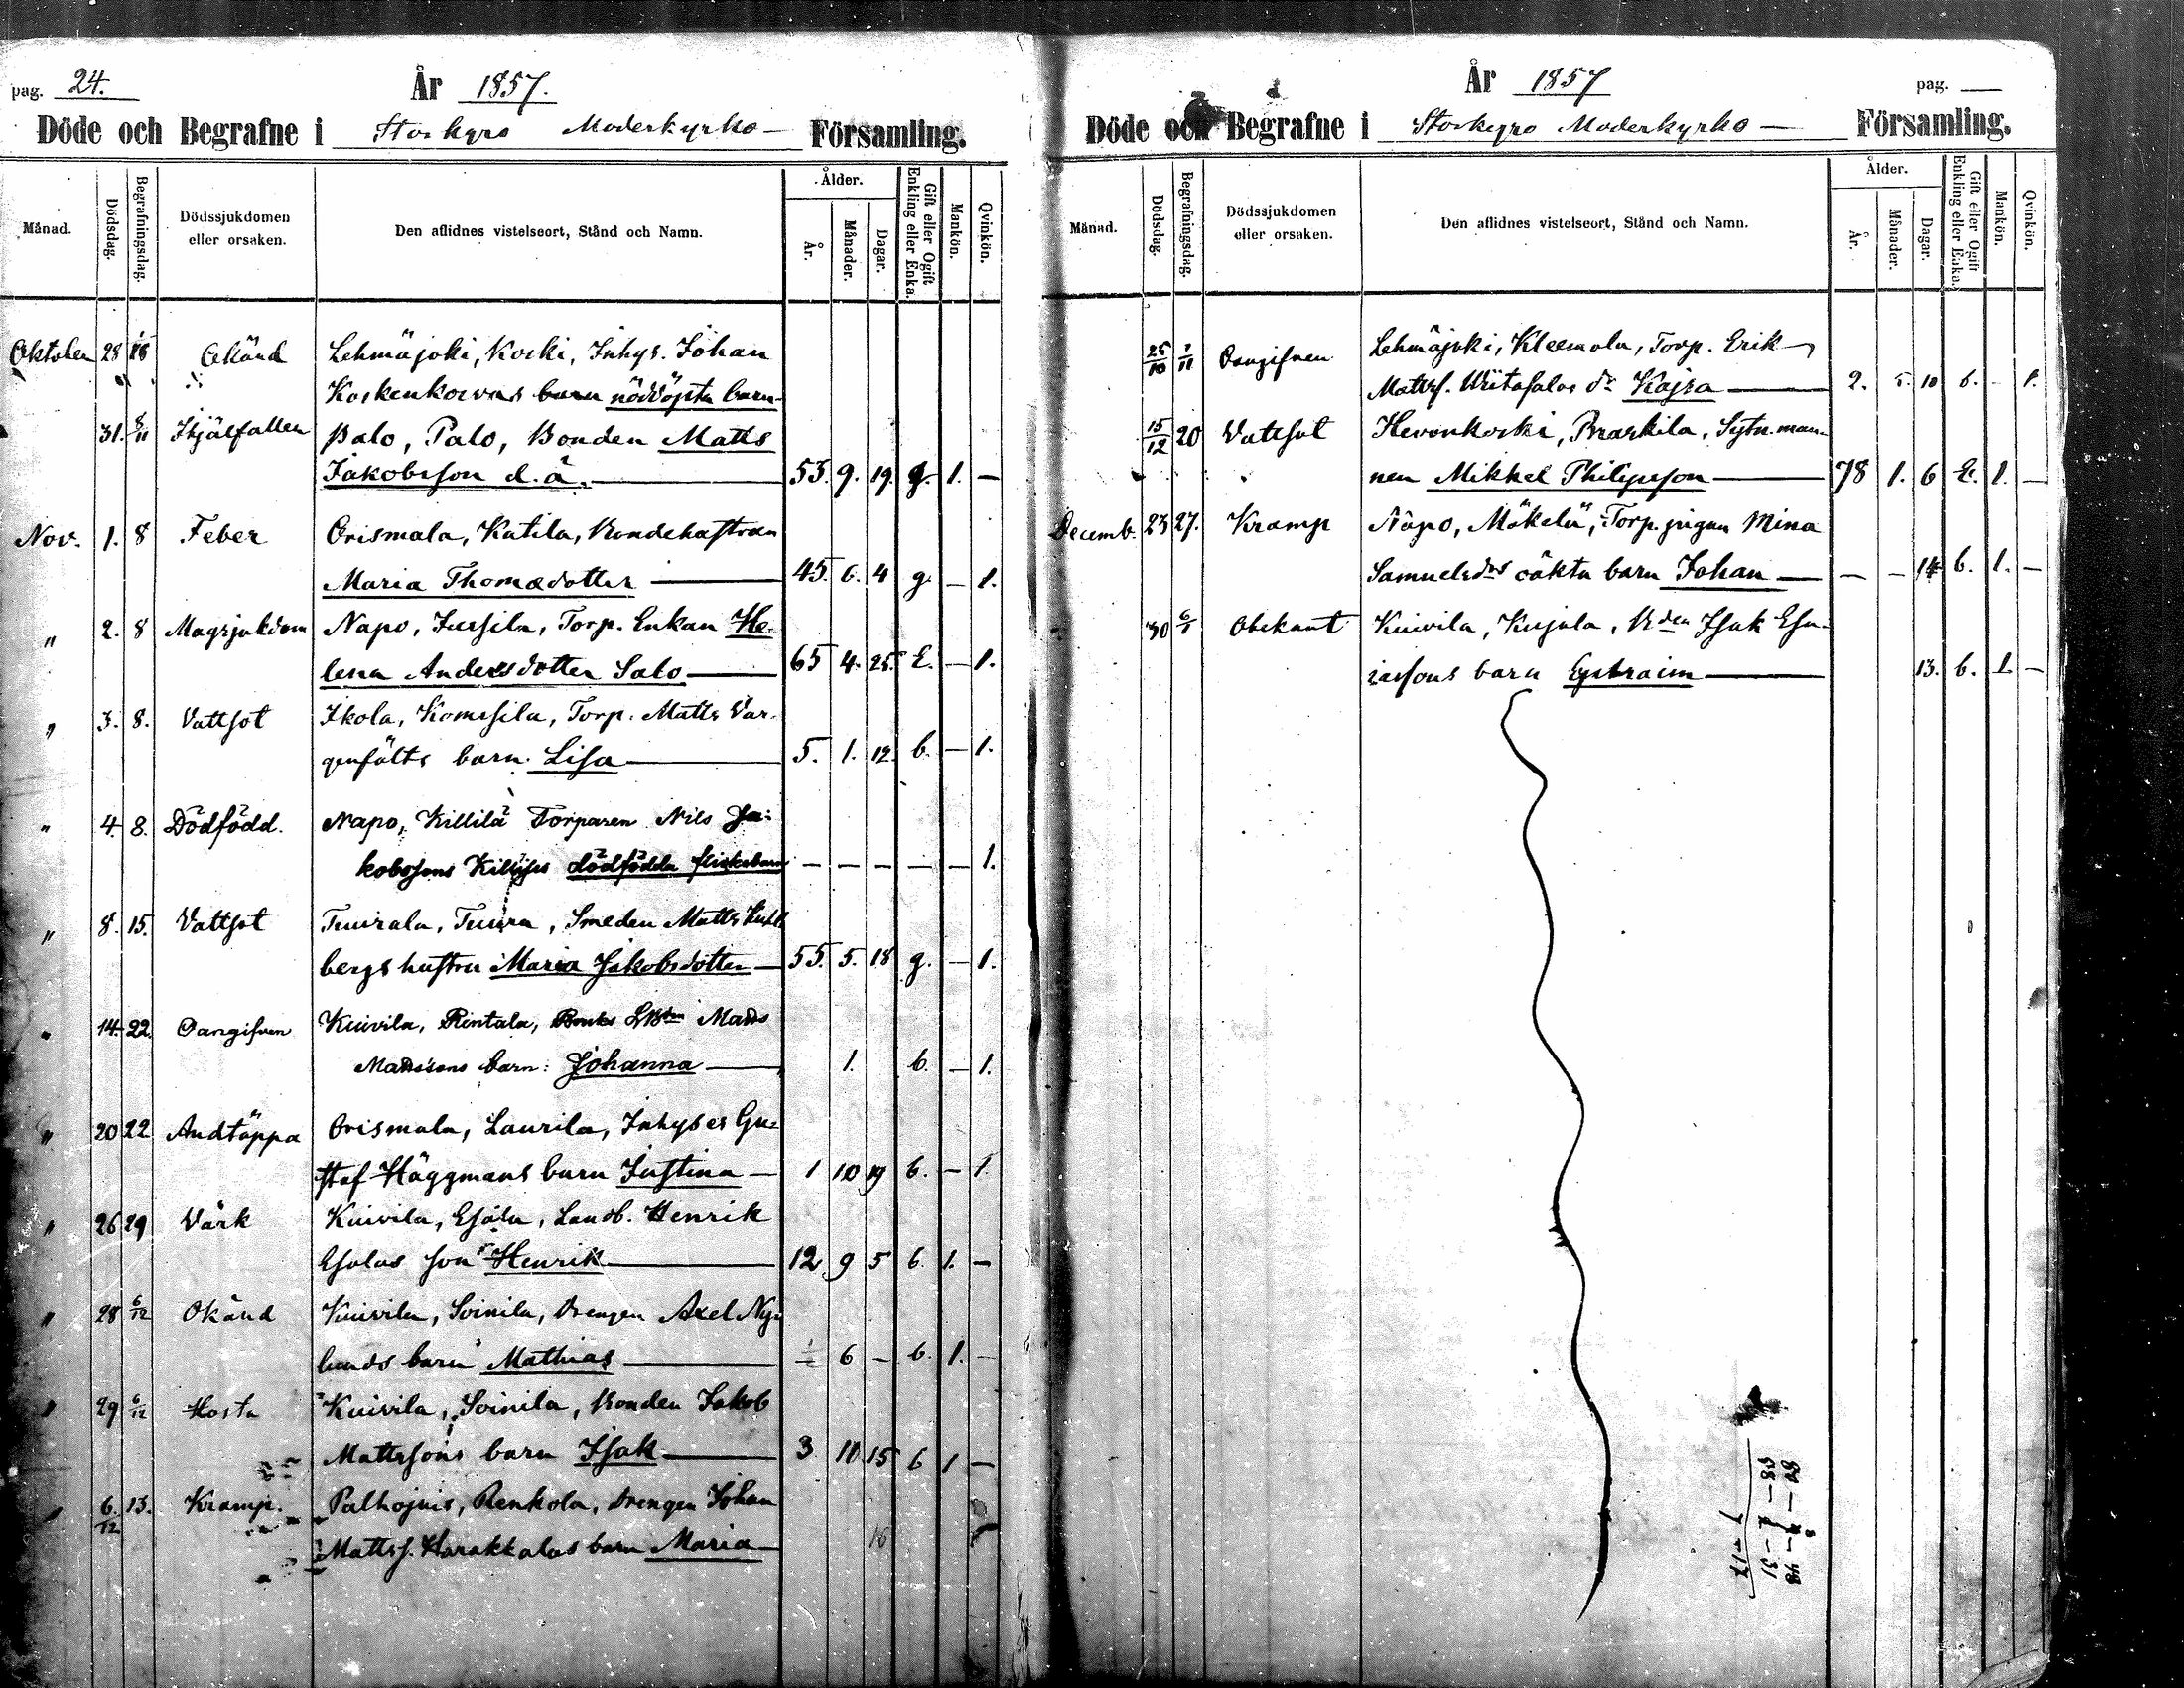 pag. 24. År 1857.
Döde och Begrafne i Storkyro Moderkyrko- Församling.
Månad. Dödsdag. Begrafningsdag. Dödssjukdomen eller orsaken. Den aflidnes vistelseort, Stånd och Namn. Ålder. År. Månader. Dagar. Gift eller Ogift Enkling eller Enka. Mankön. Qvinkön.
Oktober 28 Okänd Lehmäjoki, Koski, Inhys. Johan
Koskenkorvas barn nöddöpta barn
31. 8/11 Ihjälfallen Palo, Palo, Bonden Matts
Jakobsson d.ä. 53. 9. 19. g. 1. —
Nov. 1. 8 Feber Orismala, Katila, Bondehustrun
Maria Thomædotter 45. 6. 4 g. — 1.
" 2. 8 Magsjukdom Napo, Jussila, Torp. Enkan He-
lena Andersdotter Salo 65 4. 25. E. — 1.
" 3. 8. Vattsot Ikola, Komsila, Torp. Matts Var-
genfälts barn Lisa 5. 1. 12. b. — 1.
" 4. 8. Dödfödd. Napo, Killilä Torparen Nils Ja-
kobssons dödfödda flickebarn — — — — — 1.
" 8. 15. Vattsot Tuurala, Tuura, Smeden Matts
bergs hustru Maria Jakobsdotter 55. 5. 18 g. — 1.
" 14. 22. Oangifven Kuivila, Rintala, Matts
Mattssons barn: Johanna 1. b. — 1.
" 20 22 Andtäppa Orismala, Laurila, Inhyses Gu-
staf Häggmans barn Justina — 1 10 19 b. — 1
" 26 29 Värk Kuivila, Esala, Landb. Henrik
Esalas son Henrik 12 9 5 b. 1. —
" 28 6/12 Okänd Kuivila, Soinila, Drengen Axel Ny-
lunds barn Mathias 6 — b. 1. —
" 29 6/12 Hosta Kuivila, Soinila, Bonden Jakob
Mattssons barn Isak 3 10 15 b 1 —
" 6/12 13. Kramp. Palhojais, Renkola, Drengen Johan
Mattss. Harakkalas barn Maria 16
År 1857 pag.
Döde och Begrafne i Storkyro Moderkyrko — Församling.
Månad. Dödsdag. Begrafningsdag. Dödssjukdomen eller orsaken. Den aflidnes vistelseort, Stånd och Namn. Ålder. År. Månader. Dagar. Gift eller Ogift Enkling eller Enka. Mankön. Qvinkön.
25/10 1/11 Oangifven Lehmäjoki, Kleemola, Torp. Erik
Mattss. Wiitasalos dr Kajsa 2. 5. 10 b. — 1.
15/12 20 Vattsot Hevonkoski, Praskila, Sytn.man-
nen Mikkel Philipsson 78 1. 6 E. 1. —
Decemb. 23 27. Kramp Napo, Mäkelä, Torp. pigan Mina
Samuelsdrs oäkta barn Johan — — 14 b. 1. —
30 6/1 Obekant Kuivila, Kujala, Bden Isak Esa-
iassons barn Ephraim 13. b. 1 —